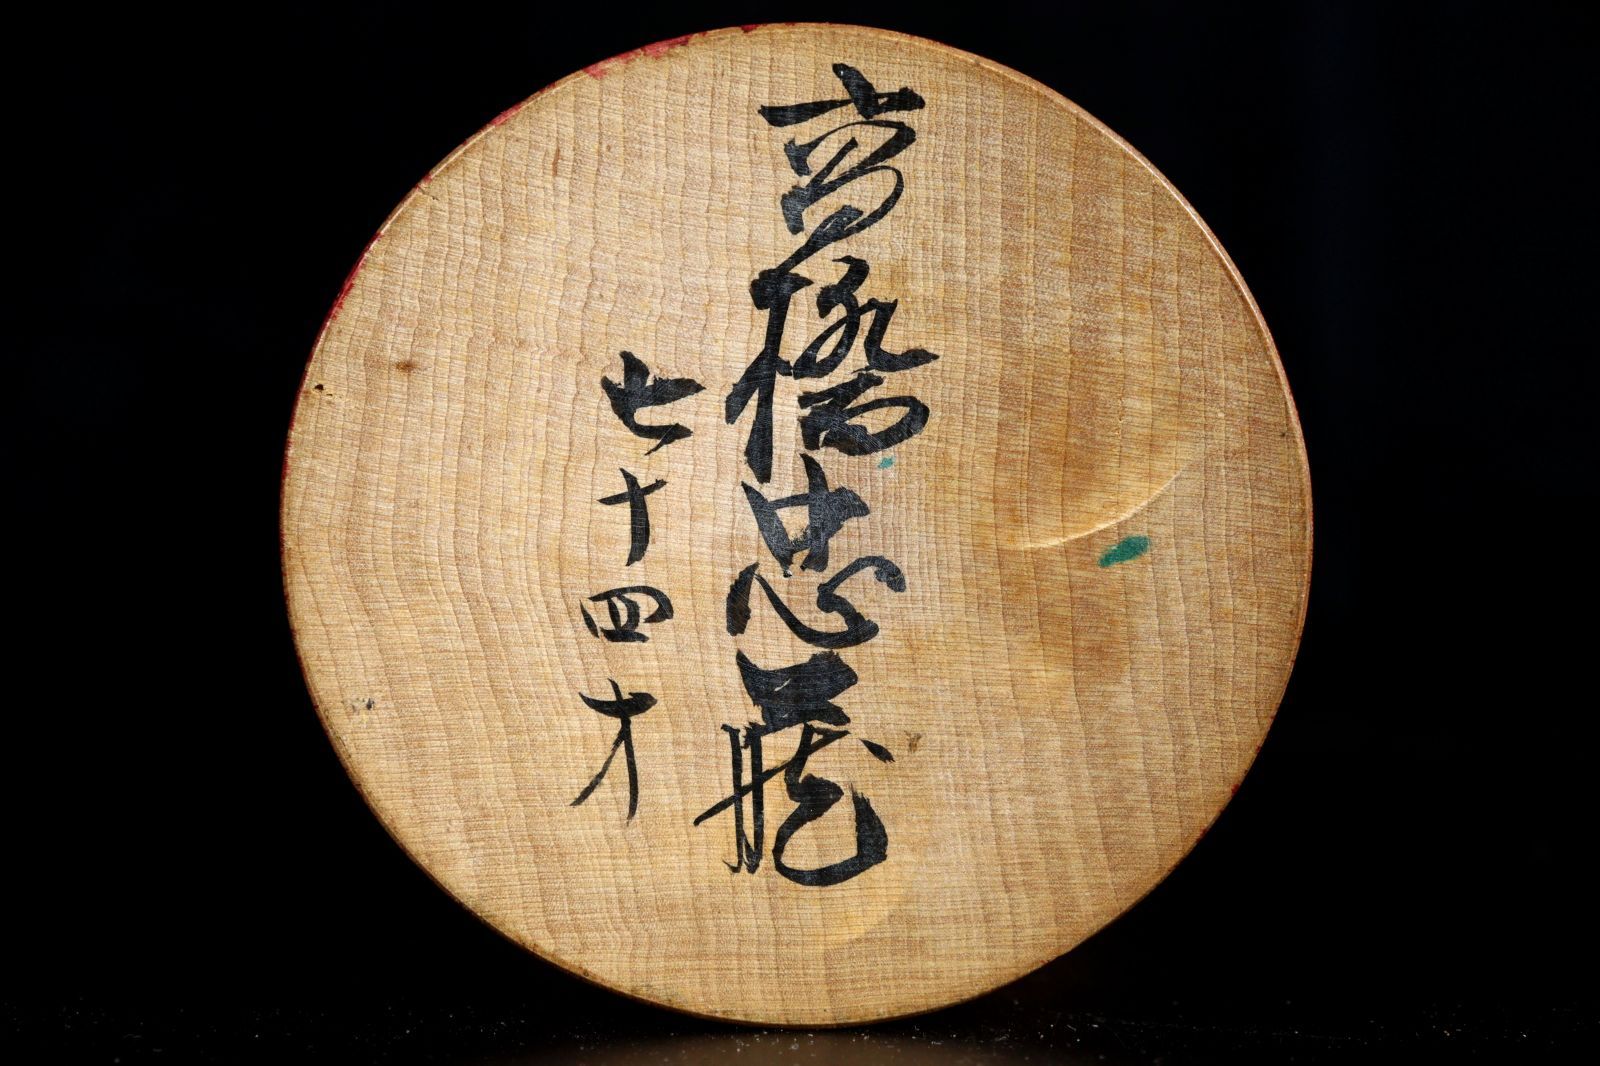 高橋忠蔵
七十四才